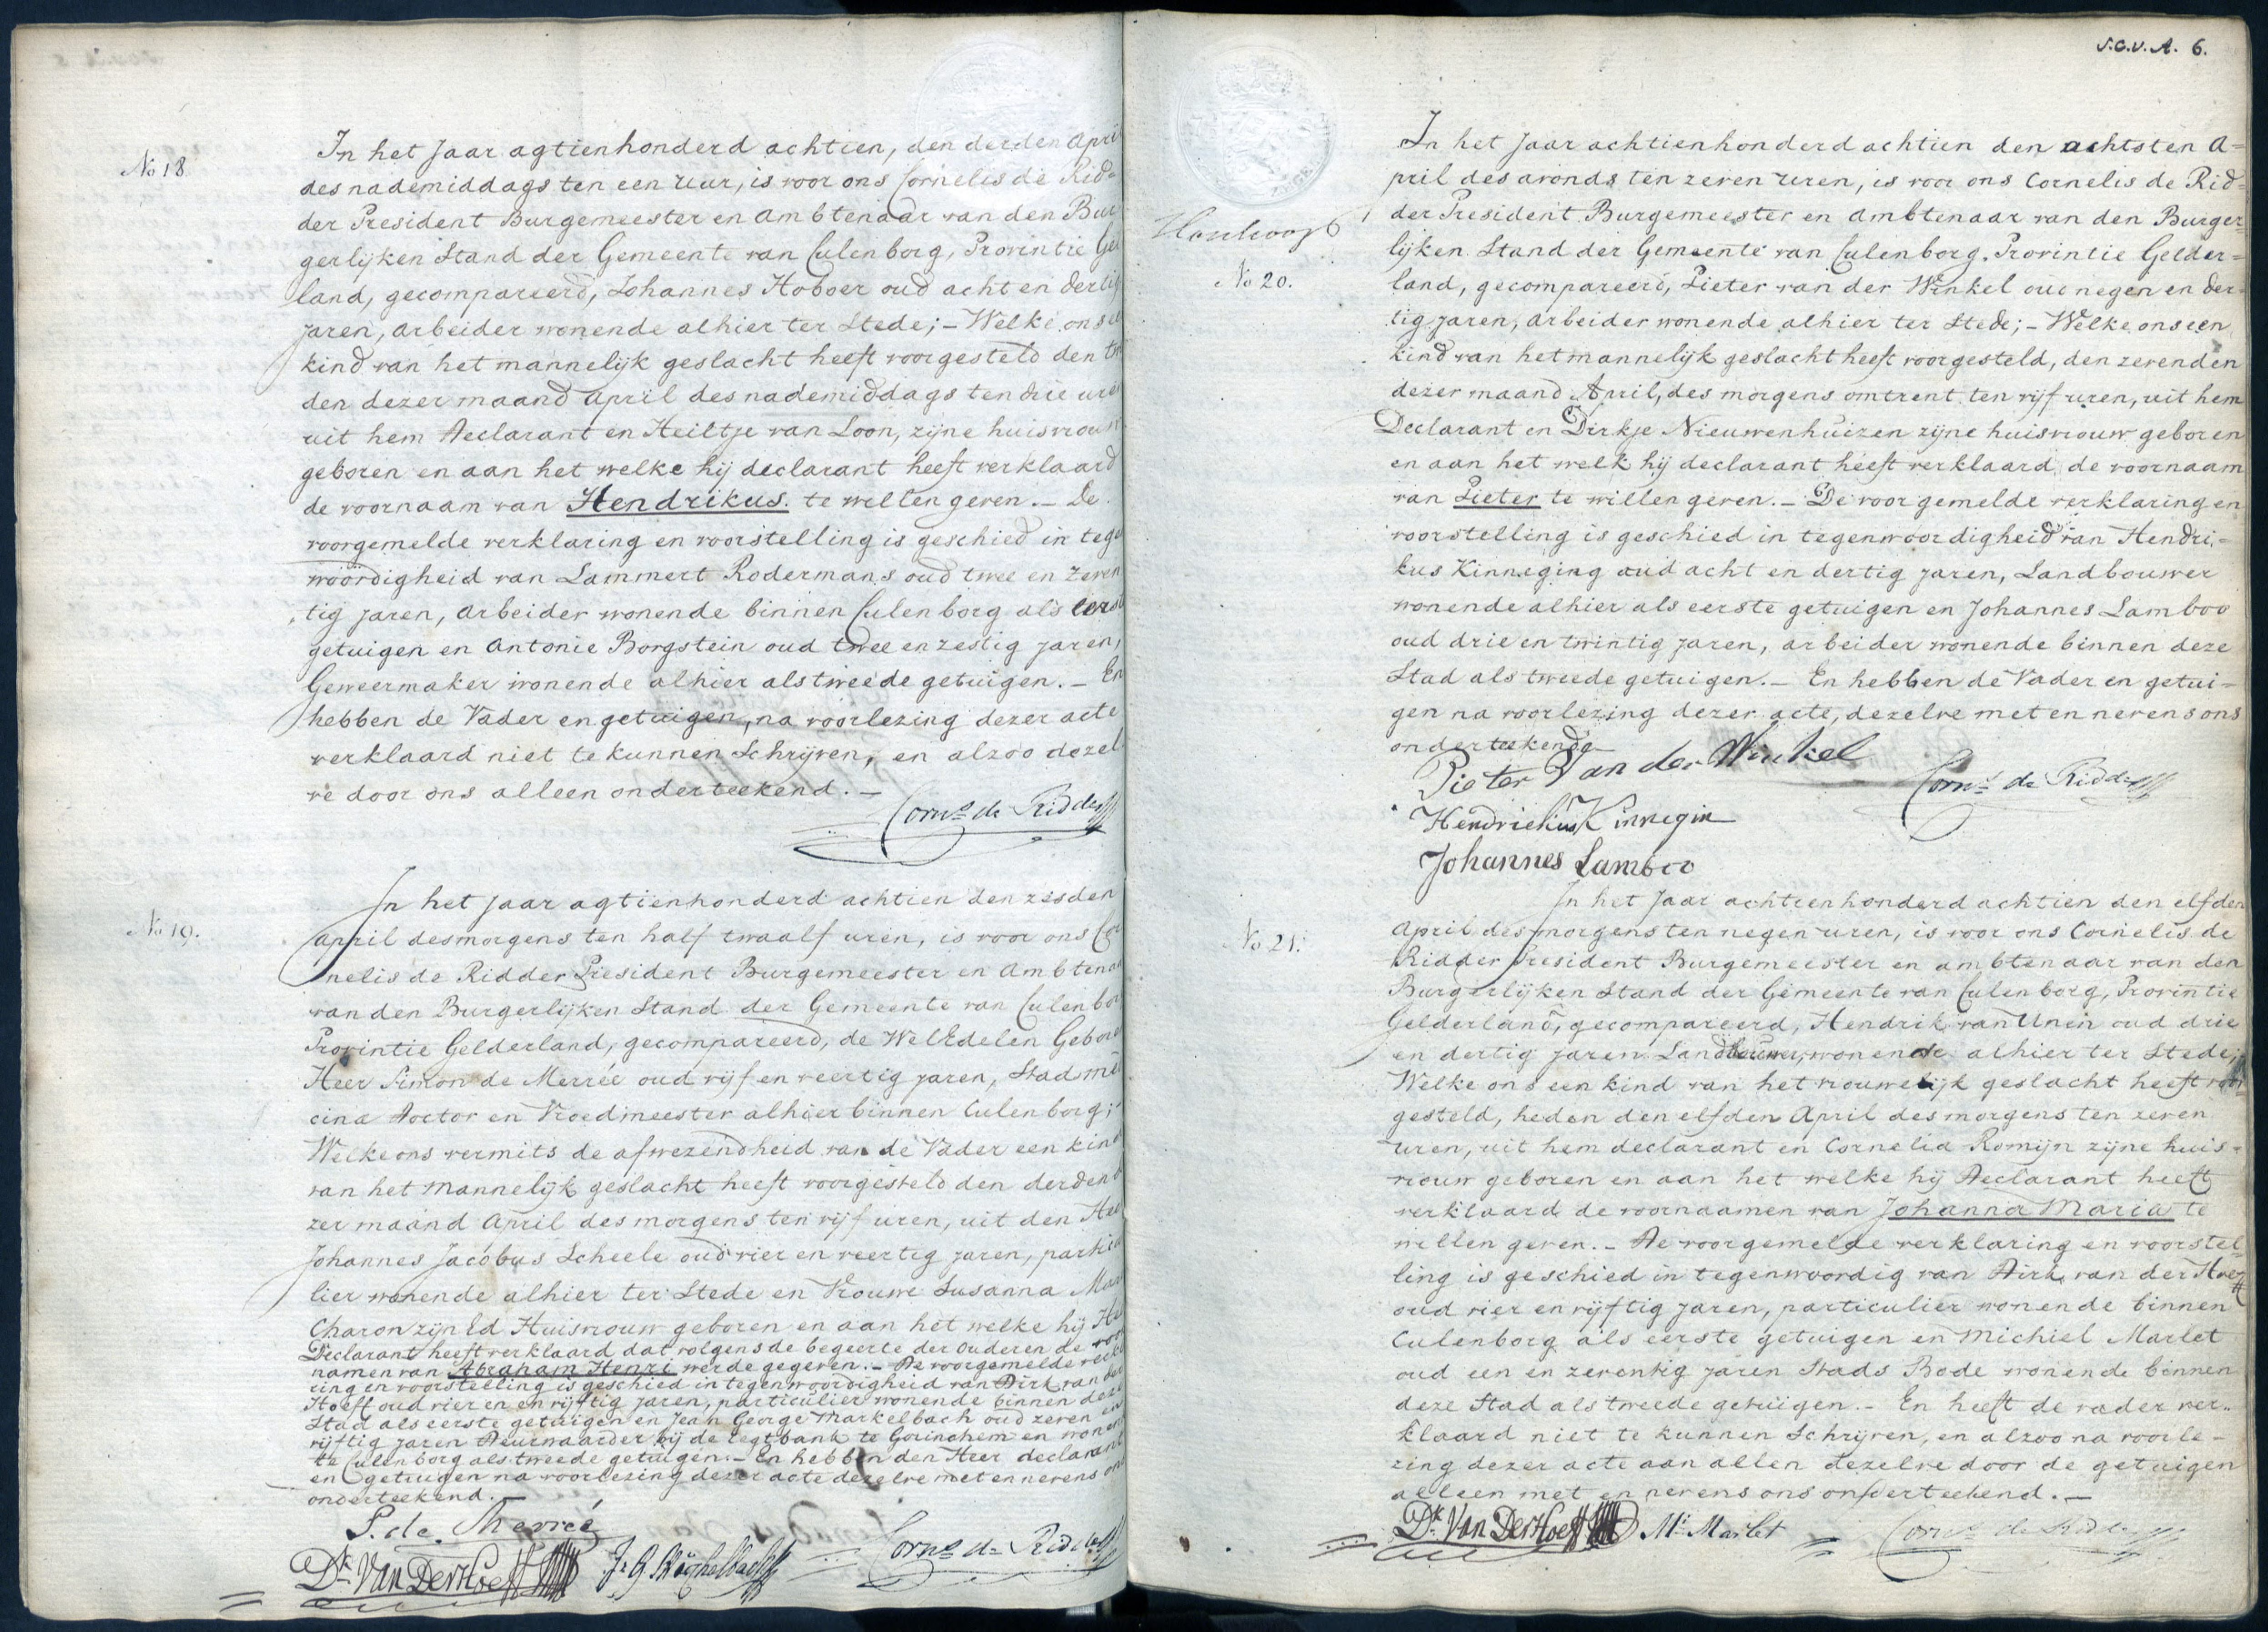 No 18.
In het Jaar agtienhonderd achtien, den derden April
des nademiddags ten een uur, is voor ons Cornelis de Rid=
der President Burgemeester en Ambtenaar van den Bur
gerlijken Stand der Gemeente van Culenborg, Provintie Gel
land, gecompareerd, Johannes Hoboer oud acht en dertig
jaren, arbeider wonende alhier ter Stede; – Welke ons een
kind van het mannelijk geslacht heeft voorgesteld den twe
den dezer maand April des nademiddags ten drie uren
uit hem Declarant en Heiltje van Loon, zijne huisvrouw
geboren en aan het welke hij declarant heeft verklaard
de voornaam van Hendrikus. te willen geven. – De
voorgemelde verklaring en voorstelling is geschied in tegen
woordigheid van Lammert Rodermans oud twee en zeven
tig jaren, arbeider wonende binnen Culenborg als eerste
getuigen en Antonie Borgstein oud twee en zestig jaren,
Geweermaker wonende alhier als tweede getuigen. – En
hebben de Vader en getuigen, na voorlezing dezer acte
verklaard niet te kunnen Schrijven, en alzoo dezel
ve door ons alleen onderteekend. –
Corns de Ridder
No 19.
In het Jaar agtienhonderd achtien den zesden
April des morgens ten half twaalf uren, is voor ons Cor
nelis de Ridder President Burgemeester en Ambtenaar
van den Burgerlijken Stand der Gemeente van Culenbor
Provintie Gelderland, gecompareerd, de WelEdelen Geboren
Heer Simon de Merrée oud vijf en veertig jaren, Stads me
cina Doctor en Vroedmeester alhier binnen Culenborg;
Welke ons vermits de afwezendheid van de Vader een kind
van het Mannelijk geslacht heeft voorgesteld den derden d
zer maand April des morgens ten vijf uren, uit den Heer
Johannes Jacobus Scheele oud vier en veertig jaren, particu
lier wonende alhier ter Stede en Vrouwe Susanna Mar
Charon zijn Ed Huisvrouw geboren en aan het welke hij He
Declarant heeft verklaard dat volgens de begeerte der Ouderen de voor
namen van Abraham Henri werde gegeven. – De voorgemelde verkl
ring en voorstelling is geschied in tegenwoordigheid van Dirk van der
Hoeff oud vier en en vijftig jaren, particulier wonende binnen deze
Stad als eerste getuigen en Jean George Markelbach oud zeven en
vijftig jaren Deurwaarder bij de regtbank te Gorinchem en wonen
te Culenborg als tweede getuigen. – En hebben den Heer declarant
en getuigen na voorlezing dezer acte dezelve met en nevens ons
onderteekend. –
S. de Merrée
Dk Van Der Hoeff
Corns de Ridder
S.C.V.A. 6.
No 20.
In het Jaar achtienhonderd achtien den achtsten A=
pril des avonds ten zeven uren, is voor ons Cornelis de Rid=
der President Burgemeester en Ambtenaar van den Burger=
lijken Stand der Gemeente van Culenborg, Provintie Gelder=
land, gecompareerd, Pieter van der Winkel oud negen en der=
tig jaren, arbeider wonende alhier ter Stede; – Welke ons een
kind van het mannelijk geslacht heeft voorgesteld, den zevenden
dezer maand April, des morgens omtrent ten vijf uren, uit hem
Declarant en Dirkje Nieuwenhuizen zijne huisvrouw geboren
en aan het welk hij declarant heeft verklaard de voornaam
van Pieter te willen geven. – De voorgemelde verklaring en
voorstelling is geschied in tegenwoordigheid van Hendri=
kus Kinneging oud acht en dertig jaren, Landbouwer
wonende alhier als eerste getuigen en Johannes Lamboo
oud drie en twintig jaren, arbeider wonende binnen deze
Stad als tweede getuigen. – En hebben de Vader en getui=
gen na voorlezing dezer acte, dezelve met en nevens ons
onderteekend
Pieter Van der Winkel
Corns de Ridder
Hendriekus Kinnegin
Johannes Lamboo
No 21.
In het Jaar achtienhonderd achtien den elfden
April des morgens ten negen uren, is voor ons Cornelis de
Ridder President Burgemeester en ambtenaar van den
Burgerlijken Stand der Gemeente van Culenborg, Provintie
Gelderland, gecompareerd, Hendrik van Unen oud drie
en dertig jaren Landbouwer, wonende alhier ter Stede;
Welke ons een kind van het vrouwelijk geslacht heeft voor
gesteld, heden den elfden April des morgens ten zeven
uren, uit hem declarant en Cornelia Romijn zijne huis=
vrouw geboren en aan het welke hij Declarant heeft
verklaard de voornaamen van Johanna Maria te
willen geven. – De voorgemelde verklaring en voorstel=
ling is geschied in tegenwoordig van Dirk van der Hoeff
oud vier en vijftig jaren, particulier wonende binnen
Culenborg als eerste getuigen en Michiel Marlet
oud een en zeventig jaren Stads Bode wonende binnen
deze Stad als tweede getuigen. – En heeft de vader ver=
klaard niet te kunnen Schrijven, en alzoo na voorle=
zing dezer acte aan allen dezelve door de getuigen
alleen met en nevens ons onderteekend. –
Dk Van Der Hoeff
Ml Marlet
Corns de Ridder